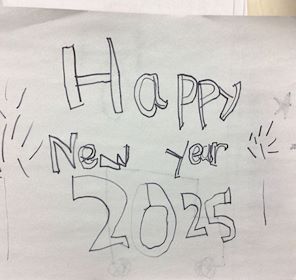 Happy
New year
2025